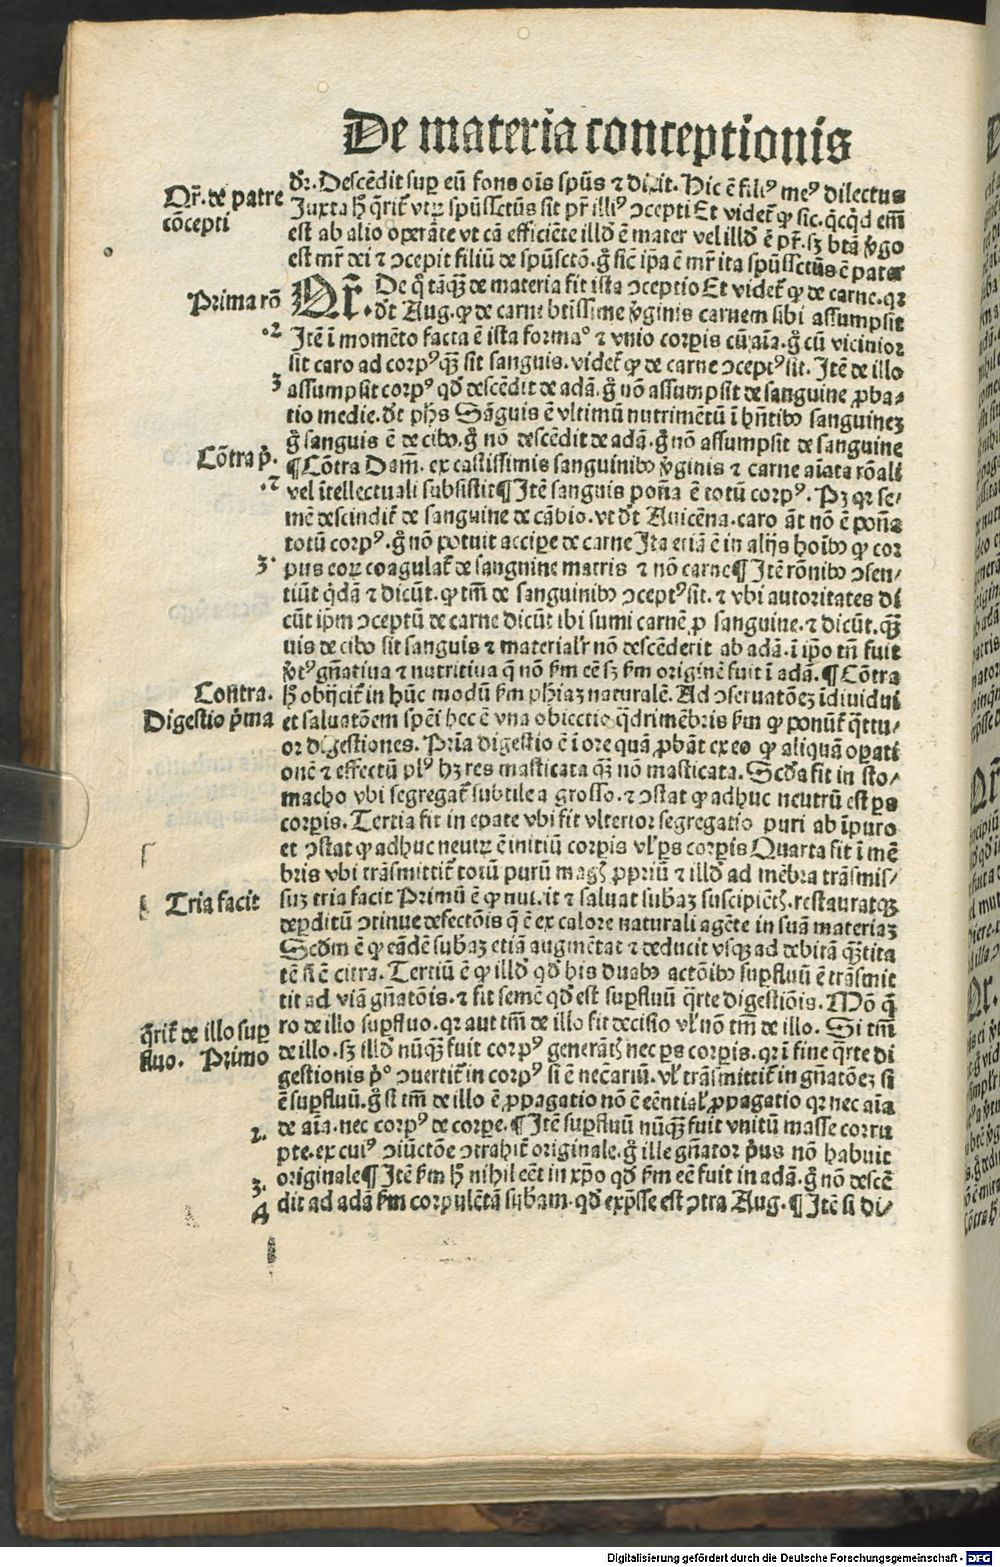 De materia conceptionis
Qr̃. de patre
cõcepti
dr̃. Descẽdit sup eũ fons ois spũs ⁊ dixit. Hic ẽ filiꝰ meꝰ dilectus
Juxta h̃ q̃rit̃ vtꝝ spũssctũs sit pr̃ illiꝰ ↄcepti Et videt̃ ꝙ sic. q̃cq̃d em̃
est ab alio operãte vt cã efficiẽte illd̃ ẽ mater vel illd̃ ẽ pr̃. sꝫ btã v̾go
est mr̃ dei ⁊ ↄcepit filiũ de spũsctõ. g̊ sic̃ ipa ẽ mr̃ ita spũssctũs ẽ pater
Prima rõ
Qr̃. De q̃ tãq̃ꝫ de materia fit ista ↄceptio Et videt̃ ꝙ de carne. qꝛ
dt̃ Aug. ꝙ de carne btissime v̾ginis carnem sibi assumpsit
.2
Jtẽ i momẽto facta ẽ ista formaº ⁊ vnio corpis cũ aĩa. g̊ cũ vicinior
sit caro ad corpꝰ q̃ꝫ sit sanguis. videt̃ ꝙ de carne ↄceptꝰ sit. Jtẽ de illo
3
assumpsit corpꝰ qd̃ descẽdit de adã. g̊ nõ assumpsit de sanguine ꝓba⸗
tio medie. dt̃ phs Sãguis ẽ vltimũ nutrimẽtũ ĩ hñtibꝰ sanguineꝫ
g̊ sanguis ẽ de cibo. g̊ nõ descẽdit de adã. g̊ nõ assumpsit de sanguine
Cõtra p̃.
¶ Cõtra Dam̃. ex castissimis sanguinibꝰ v̾ginis ⁊ carne aĩata rõali
.2
vel ĩtellectuali subsistit ¶ Jtẽ sanguis poña ẽ totũ corpꝰ. Pꝫ qꝛ se⸗
mẽ descindit̃ de sanguine de cãbio. vt dt̃ Auicẽna. caro ãt nõ ẽ poña
totũ corpꝰ. g̊ nõ potuit accipe de carne Jta etiã ẽ in alijs hoĩbꝰ ꝙ cor
3.
pus coꝝ coagulat̃ de sanguine matris ⁊ nõ carne ¶ Jtẽ rõnibꝰ ↄsen⸗
tiũt q̃dã ⁊ dicũt. ꝙ tm̃ de sanguinibꝰ ↄceptꝰ sit. ⁊ vbi autoritates di
cũt ipm̃ ↄceptũ de carne dicũt ibi sumi carnẽ ꝓ sanguine. ⁊ dicũt. q̃ꝫ
uis de cibo sit sanguis ⁊ materialr̃ nõ descẽderit ab adã. ĩ ipo tñ fuit
v̾tꝰ gñatiua ⁊ nutritiua q̃ nõ ẜm eẽ sꝫ ẜm originẽ fuit ĩ adã. ¶ Cõtra
Contra.
h̃ obijcit̃ in hũc modũ ẜm phiaꝫ naturalẽ. Ad ↄseruatõeꝫ ĩdiuidui
Digestio p̃ma
et saluatõem spẽi hec ẽ vna obiectio q̃drimẽbris ẜm ꝙ ponũt̃ q̃ttu⸗
or digestiones. Pria digestio ẽ ĩ ore quã ꝓbãt ex eo ꝙ aliquã opati
onẽ ⁊ effectũ plꝰ hꝫ res masticata q̃ꝫ nõ masticata. Scd̃a fit in sto⸗
macho vbi segregat̃ subtile a grosso. ⁊ ↄstat ꝙ adhuc neutrũ est ps
corpis. Tertia fit in epate vbi fit vlterior segregatio puri ab ĩpuro
et ↄstat ꝙ adhuc neutꝝ ẽ initiũ corpis vl̃ ps corpis Quarta fit ĩ mẽ
bris vbi trãsmittit̃ totũ purũ mag̃ ꝓpriũ ⁊ illd̃ ad mẽbra trãsmis⸗
Tria facit
suꝫ tria facit Primũ ẽ ꝙ nutrit ⁊ saluat subaꝫ suscipiẽt̃. restauratqꝫ
depditũ ↄtinue defectõis q̃ ẽ ex calore naturali agẽte in suã materiaꝫ
Scd̃m ẽ ꝙ eãdẽ subaꝫ etiã augmẽtat ⁊ deducit vsqꝫ ad debitã q̃ꝫtita
tẽ si ẽ citra. Tertiũ ẽ ꝙ illd̃ qd̃ his duabꝰ actõibꝰ supfluũ ẽ trãsmit
tit ad viã gñatõis. ⁊ fit semẽ qd̃ est supfluũ q̃rte digestiõis. Mõ q̃
q̃rit̃ de illo sup
fluo. Primo
ro de illo supfluo. qꝛ aut tm̃ de illo fit decisio vl̃ nõ tm̃ de illo. Si tm̃
de illo. sꝫ illd̃ nũq̃ꝫ fuit corpꝰ generãt̃ nec ps corpis. qꝛ ĩ fine q̃rte di
gestionis p̃º ↄuertit̃ in corpꝰ si ẽ nec̃ariũ. vl̃ trãsmittit̃ in gñatõeꝫ si
ẽ supfluũ. g̊ si tm̃ de illo ẽ ꝓpagatio nõ ẽ eẽntial̃ ꝓpagatio qꝛ nec aĩa
2.
de aĩa. nec corpꝰ de corpe. ¶ Jtẽ supfluũ nũq̃ꝫ fuit vnitũ masse corru
pte. ex cuiꝰ ↄiũctõe ↄtrahit̃ originale. g̊ ille gñator p̾us nõ habuit
3.
originale ¶ Jtẽ ẜm h̃ nihil eẽt in xp̃o qd̃ ẜm eẽ fuit in adã. g̊ nõ descẽ
4
dit ad adã ẜm corpulẽtã subam. qd̃ exp̃sse est ↄtra Aug. ¶ Jtẽ si di⸗
Digitalisierung gefördert durch die Deutsche Forschungsgemeinschaft - DFG